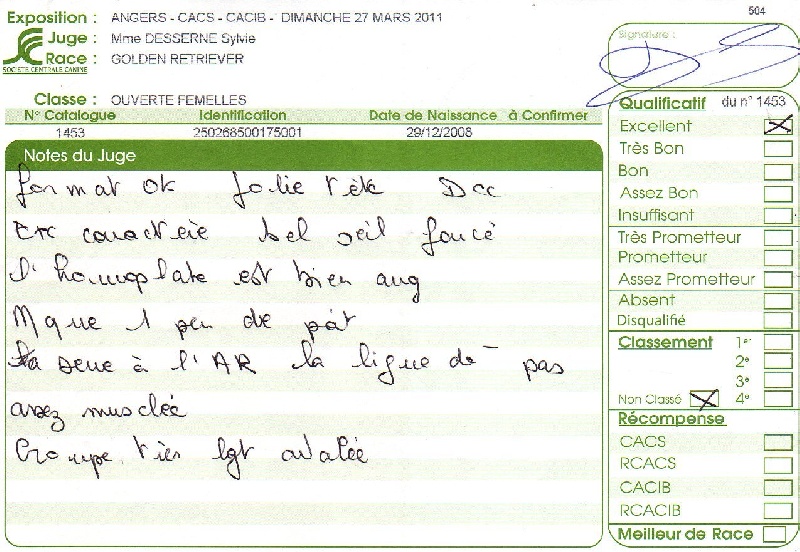 504
Exposition : ANGERS - CACS - CACIB - DIMANCHE 27 MARS 2011
Juge : Mme DESSERNE Sylvie
Race : GOLDEN RETRIEVER
SOCIETE CENTRALE CANINE
Signature :
Classe : OUVERTE FEMELLES
N° Catalogue Identification Date de Naissance à Confirmer
1453 250268500175001 29/12/2008
Notes du Juge
format ok jolie tête
bel oeil foncé
l'homoplate est bien ang
Mque 1 peu de
à l'AR la ligne de pas
assez musclée
Croupe très lgt avalée
Qualificatif du n° 1453
Excellent
Très Bon
Bon
Assez Bon
Insuffisant
Très Prometteur
Prometteur
Assez Prometteur
Absent
Disqualifié
Classement 1er
2e
3e
Non Classé 4e
Récompense
CACS
RCACS
CACIB
RCACIB
Meilleur de Race